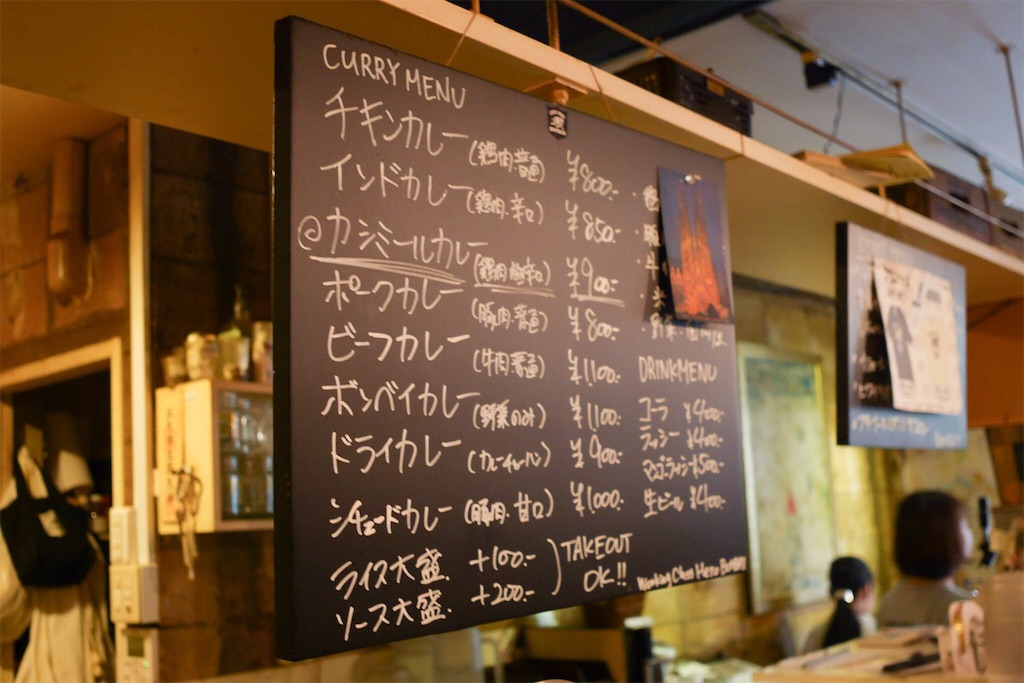 CURRY MENU
チキンカレー (鶏肉・普通) ¥800-
インドカレー (鶏肉・辛口) ¥850-
@カシミールカレー (鶏肉・極辛口) ¥900-
ポークカレー (豚肉・普通) ¥800-
ビーフカレー (牛肉・普通) ¥1,100-
ボンバイカレー (野菜のみ) ¥1,100-
ドライカレー (カレーチャーハン) ¥900-
シチュードカレー (豚肉・甘口) ¥1,000-
ライス大盛 +100-
ソース大盛 +200-
TAKEOUT
OK!!
DRINK MENU
コーラ ¥400-
ラッシー ¥400-
マンゴラッシー ¥500-
生ビール ¥400-
Working Class Menu Boards